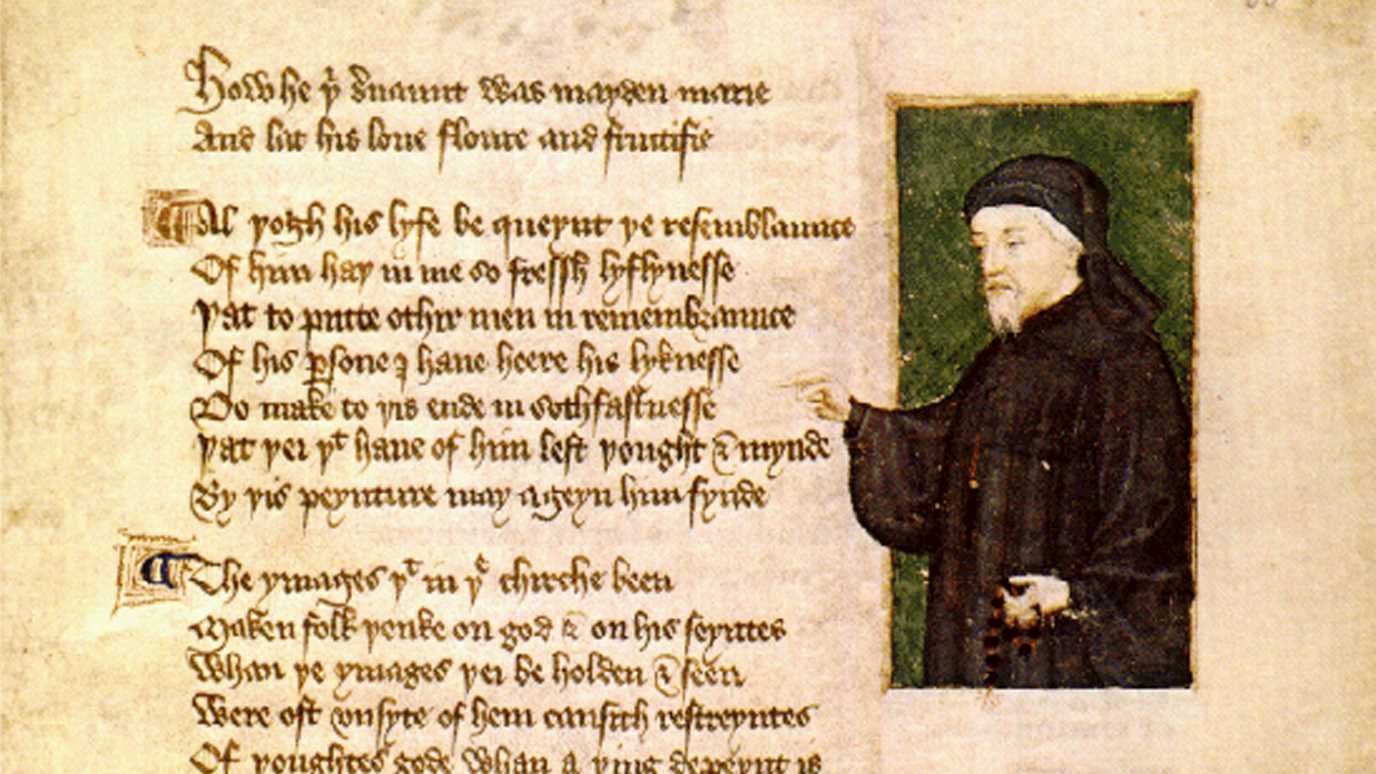 How he þͥ s̉uaunt was mayden marie
And lat his loue floure and fructifie
Al þogh his lyfe be queynt þe resemblaunce
Of him haþ in me so fressh lyflynesse
Þat to putte othir men in remembraunce
Of his ꝑsone I haue heere his lyknesse
Do make to þis ende in sothfastnesse
Þat þei þͭ haue of him left þought & mynde
By þis peynture may ageyn him fynde
The ymages þͭ in þͤ chirche been
Maken folk þenke on god & on his seyntes
Whan þe ymages þei be holden & seen
Were oft vnsyte of hem causith restreyntes
Of þoughtes gode whan a þing depeynt is